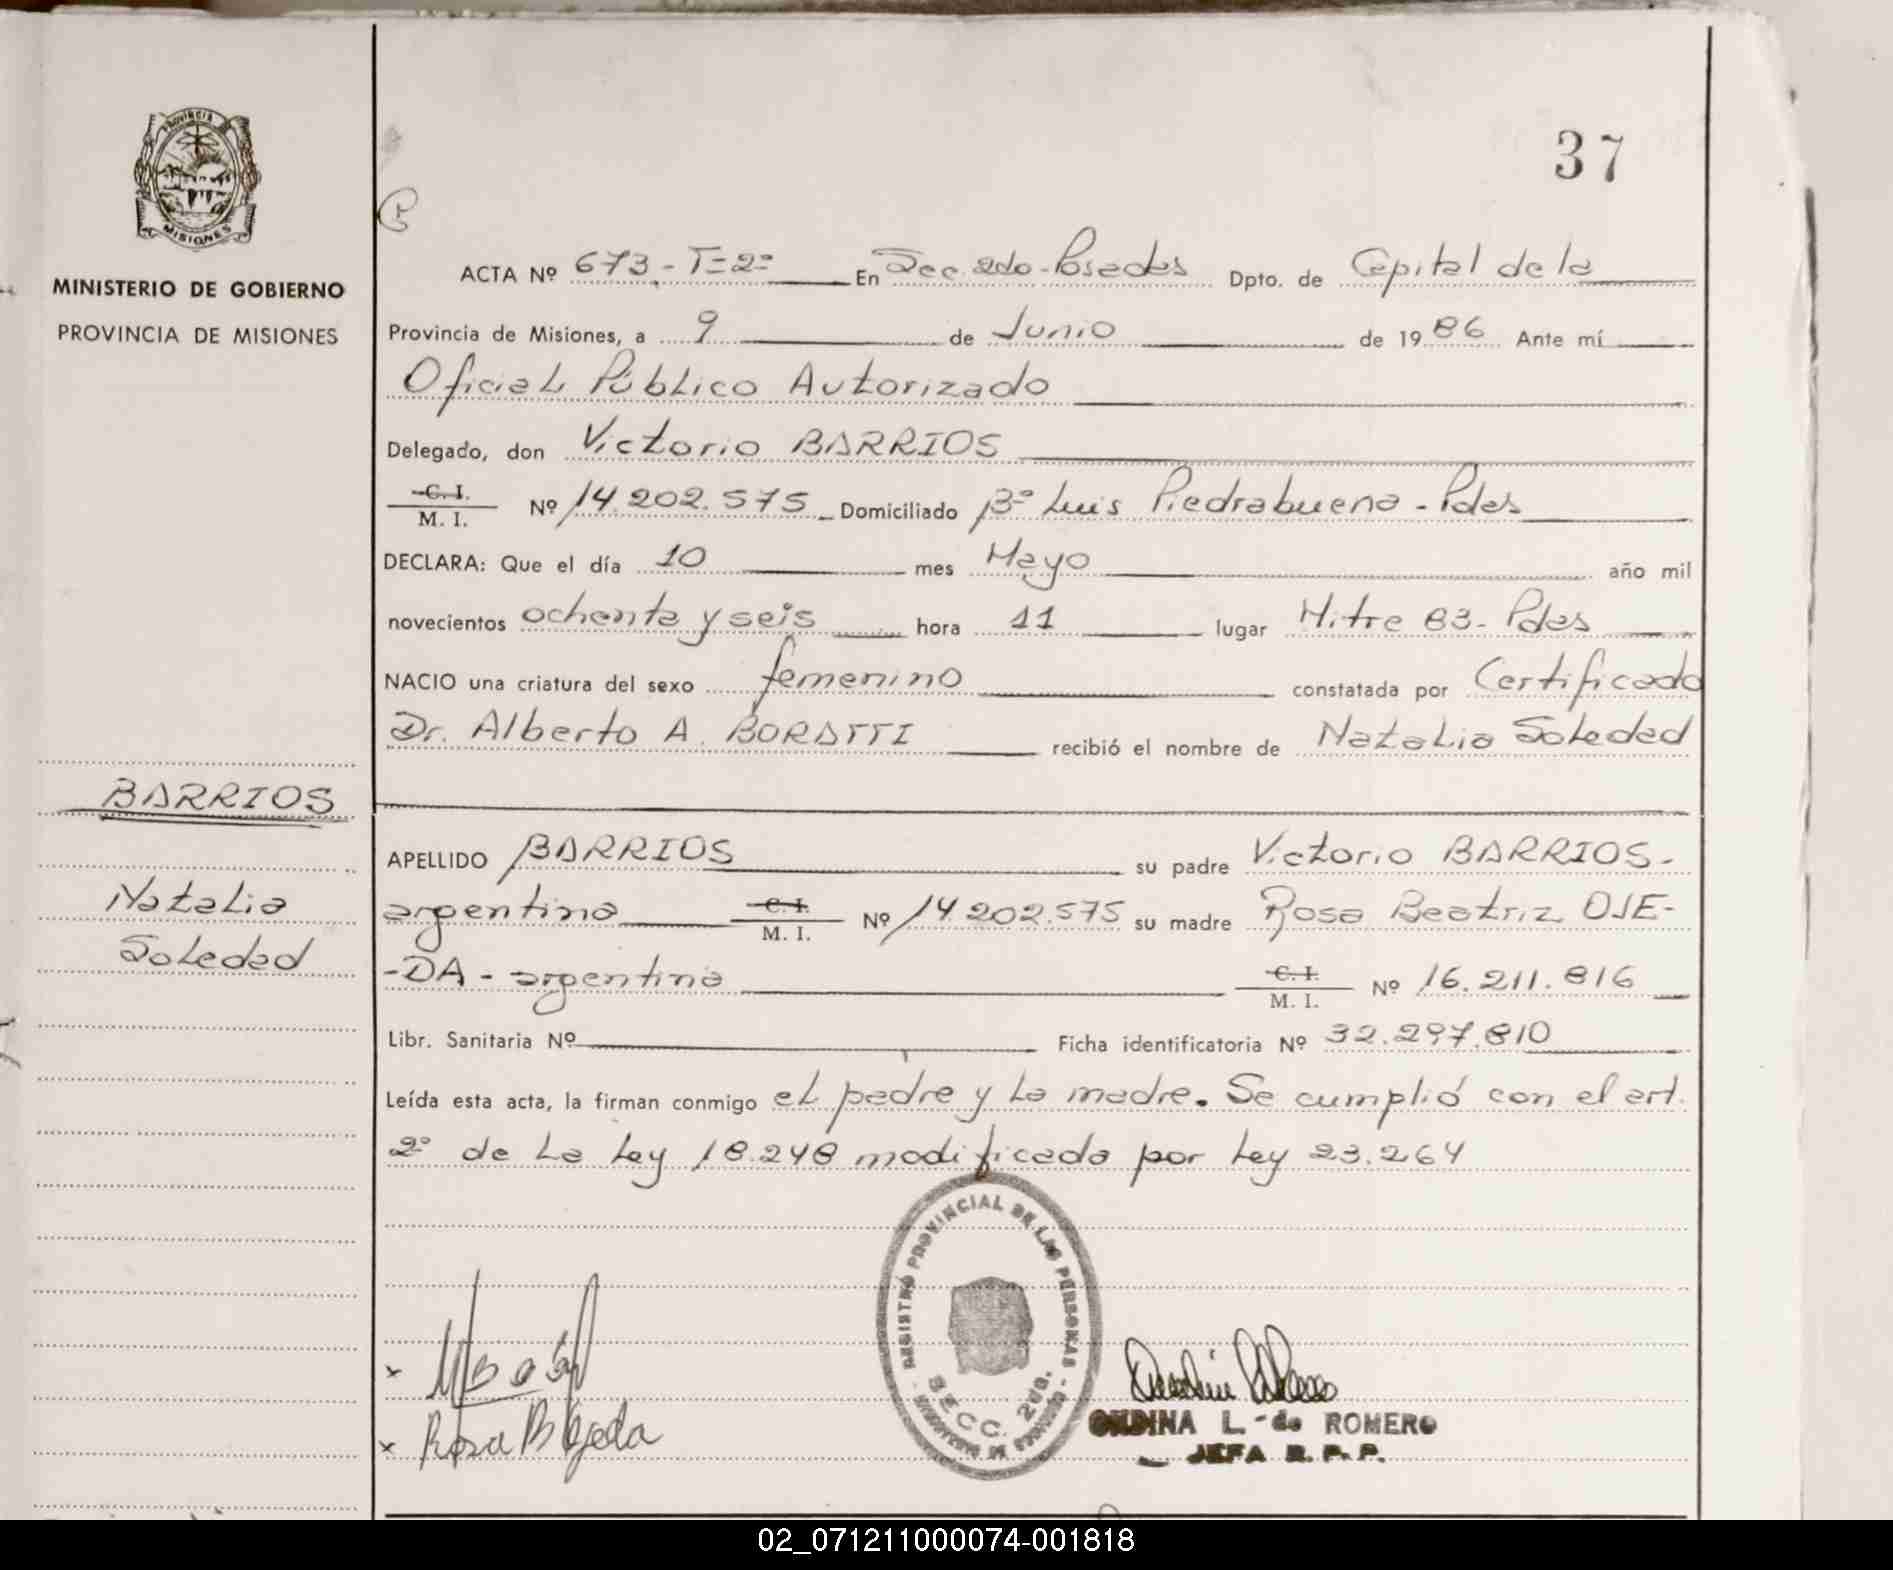 PROVINCIA
MISIONES
MINISTERIO DE GOBIERNO
PROVINCIA DE MISIONES
BARRIOS
Natalia
Soledad
37
ACTA Nº 673 - T=2º En Sec. 2do - Posadas Dpto. de Capital de la
Provincia de Misiones, a 9 de Junio de 1986 Ante mí
Oficial Público Autorizado
Delegado, don Victorio BARRIOS
C. I.
M. I. Nº 14.202.575 Domiciliado Bº Luis Piedrabuena - Pdas
DECLARA: Que el día 10 mes Mayo año mil
novecientos ochenta y seis hora 11 lugar Mitre 83 - Pdas
NACIO una criatura del sexo femenino constatada por Certificado
Dr. Alberto A. BORATTI recibió el nombre de Natalia Soledad
APELLIDO BARRIOS su padre Victorio BARRIOS -
argentino C. I. M. I. Nº 14.202.575 su madre Rosa Beatriz OJE-
-DA - argentina C. I. M. I. Nº 16.211.816
Libr. Sanitaria Nº Ficha identificatoria Nº 32.297.810
Leída esta acta, la firman conmigo el padre y la madre. Se cumplió con el art.
2º de la Ley 18.248 modificada por Ley 23.264
REGISTRO PROVINCIAL DE LAS PERSONAS
SECC. 2da.
x
x Rosa B Ojeda
ONDINA L. de ROMERO
JEFA R. P. P.
02_071211000074-001818